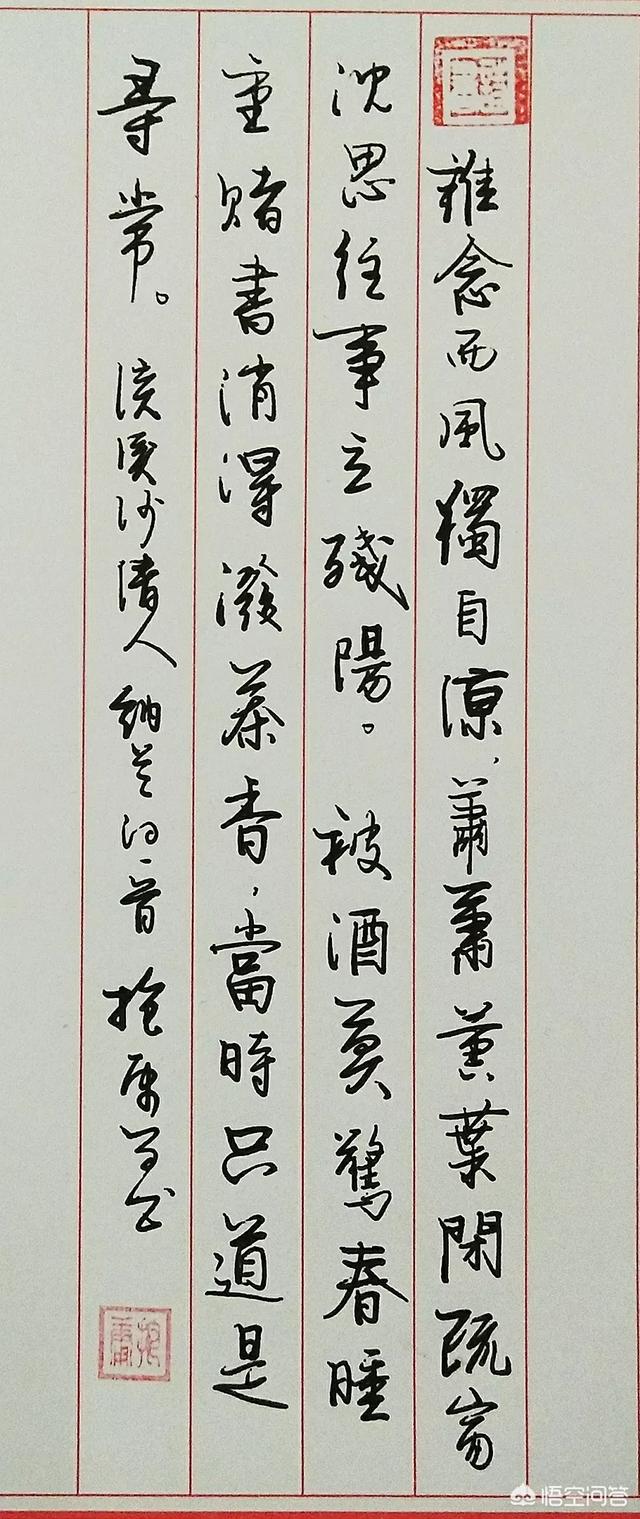 誰念西風獨自涼，蕭蕭黄葉閉疏窗
沈思往事立殘陽。被酒莫驚春睡
重賭書消得潑茶香，當時只道是
尋常。浣溪沙清人納兰词一首
悟空问答